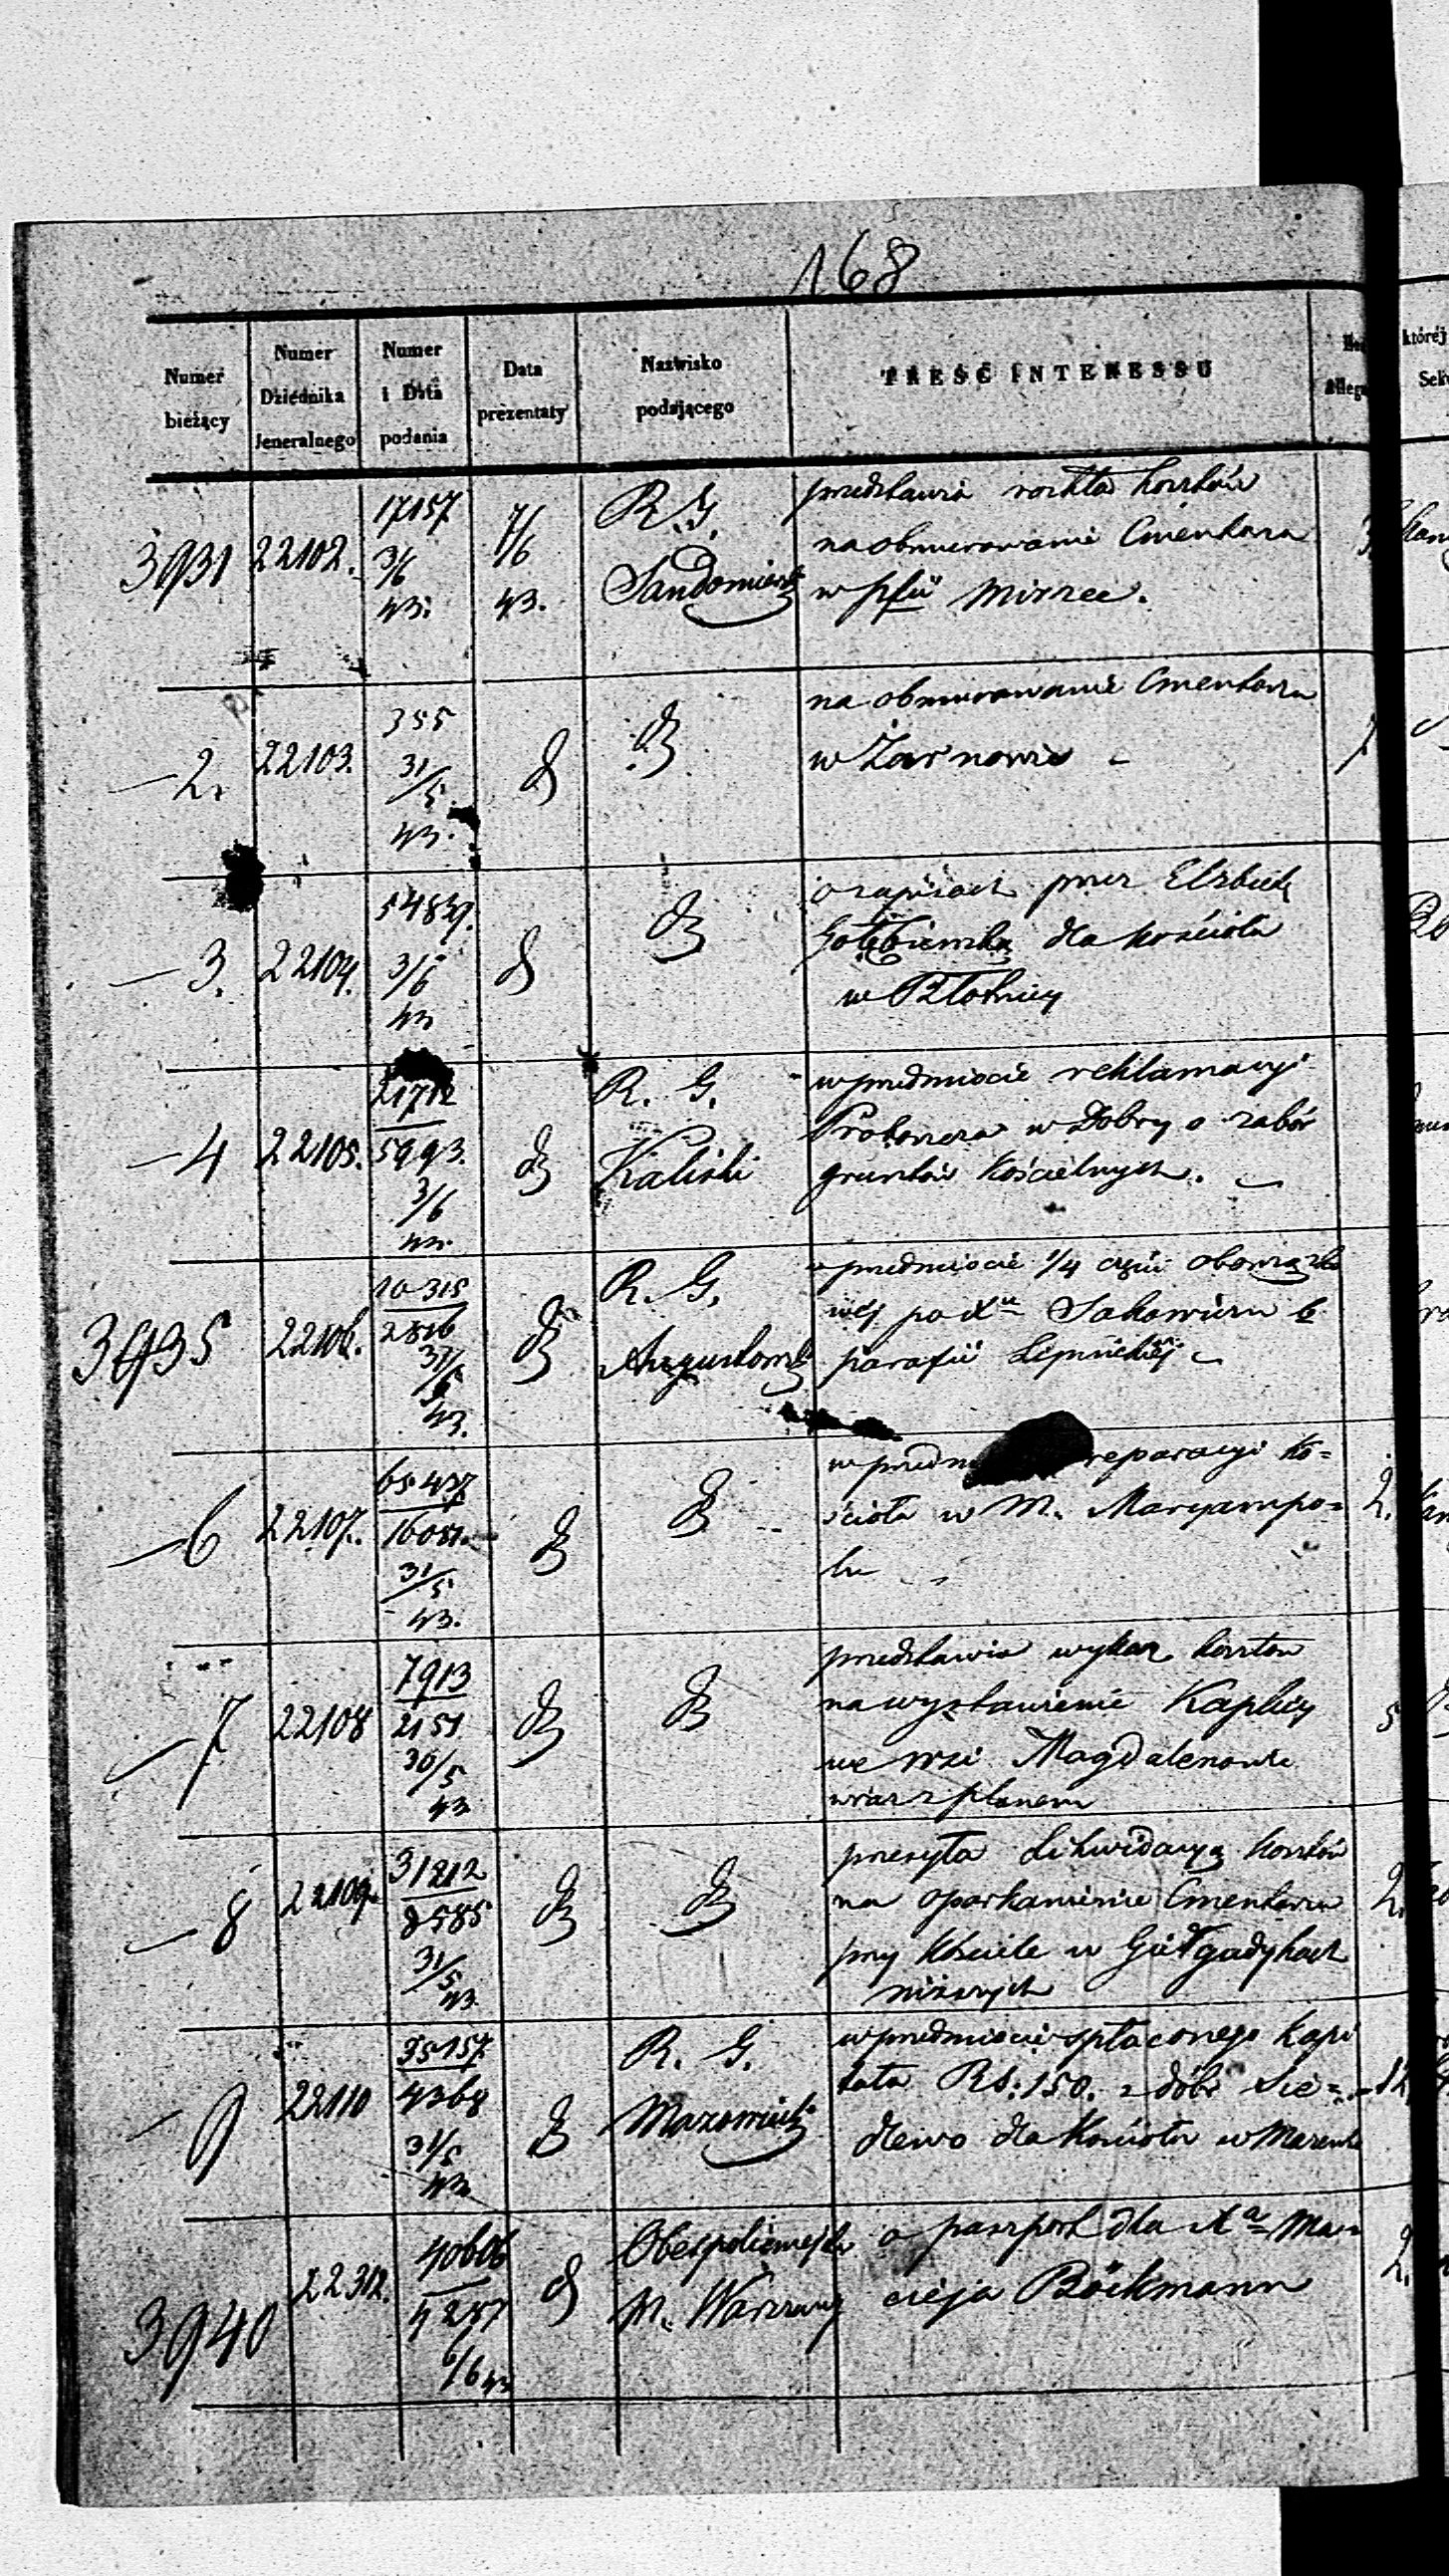 168
Numer bieżący
Numer Dziennika Jeneralnego
Numer i Data podania
Data prezentaty
Nazwisko podającego
TREŚĆ INTERESSU
której
3931 22102. 17157. 3/6 43. 7/6 43. R. G. Sandomiersk
przedstawia rozkład kosztów
na obmurowanie Cmentarza
w pfii Mirzec.
— 2. 22103. 355 31/5 43.
na obmurowanie Cmentarza
w Żarnowie
— 3. 22104. 54839. 3/6 43
o zapisach przez Elżbietę
Gołębiewską dla kościoła
w Błotnicy
— 4 22105. 21712 5993. 3/6 43. R. G. Kaliski
w przedmiocie reklamacyi
Proboszcza w Dobry o zabór
gruntów kościelnych.
3935 22106. 10315 2816 31/5 43. R. G. Augustowsk
w przedmiocie 1/4 części obowiązko
wéj po Xu Sakowiczu
parafii Lipnickiéj
— 6 22107. 65437 16081. 31/5 43.
w przedm reparacyi Ko=
ścioła w M. Maryampo=
lu
2.
— 7 22108 7913 2151 30/5 43
przedstawia wykaz kosztów
na wystawienie Kaplicy
we wsi Magdalenowie
wraz z planem
5
— 8 22109. 31212 8585 31/5 43
przesyła Likwidacyą kosztów
na oparkanienie Cmentarza
przy kościele w
2.
— 9 22110 35157. 4368 31/5 43. R. G. Mazowieck
w przedmiocie spłaconego kapi
tału Rs: 150. z dóbr Sie=
dlewo dla kościoła w
3940 22312. 40606 4287 6/6 43 Oberpolicmajster M. Warszawy
o paszport dla Xa Ma=
cieja Böckmann
2.